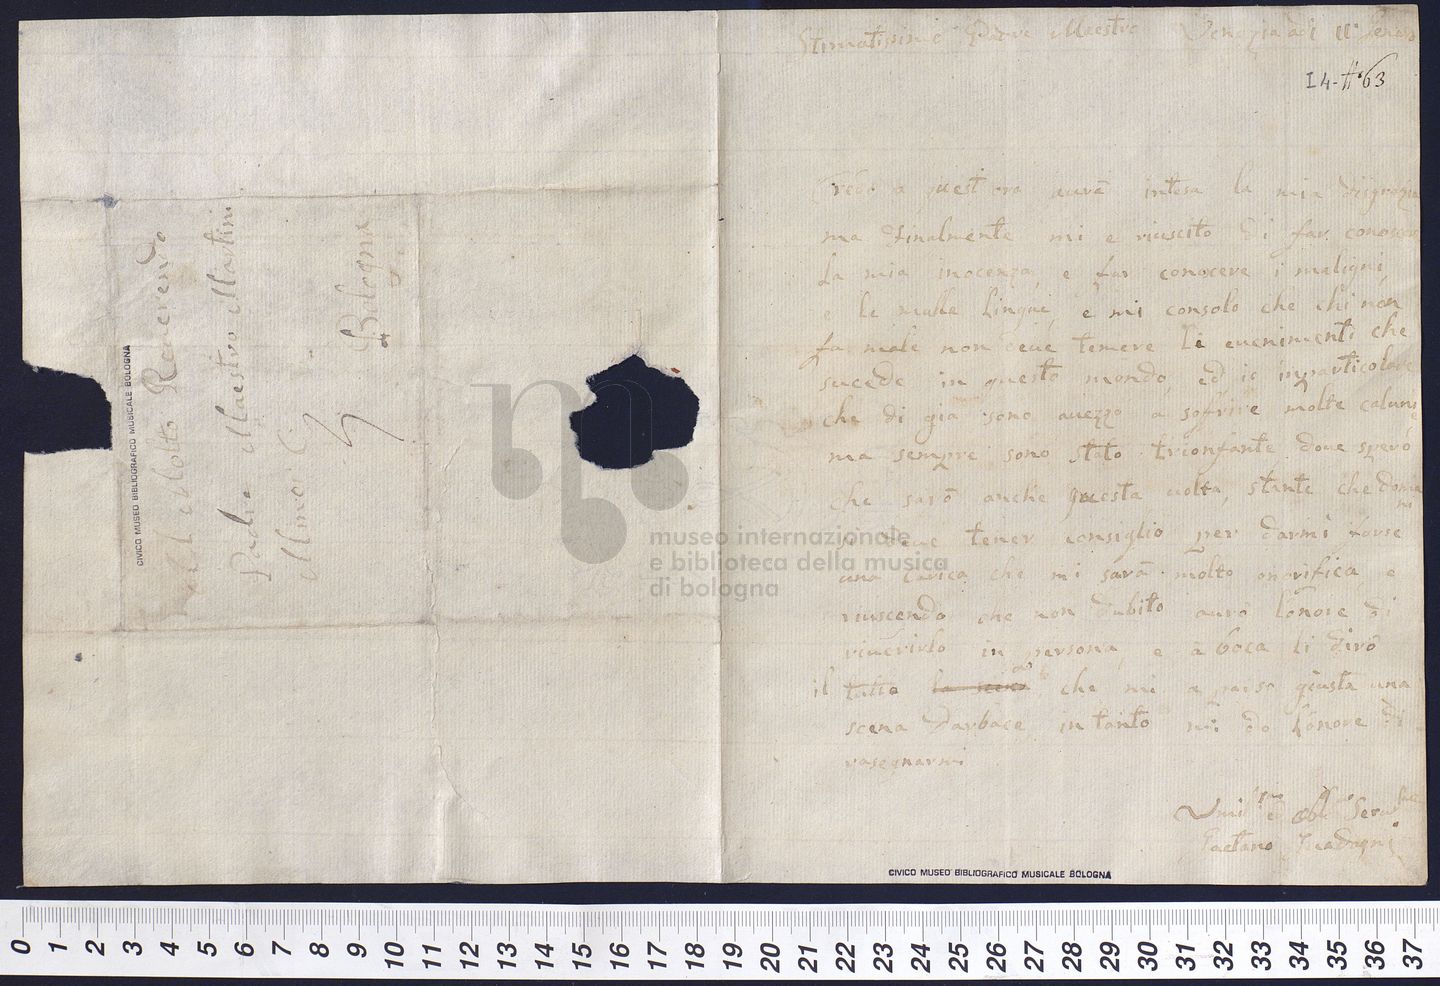 Stimatissimo Padre Maestro Venezia adi 11 Genaro
I 4-#63
Credo a quest ora aurà intesa la mia disgrazia
ma finalmente mi e riuscito di far conoscer
la mia inocenza, e far conocere i maligni,
e le malle lingue, e mi consolo che chi non
fa male non deue temere li euenimenti che
sucede in questo mondo, ed io inparticolare
che di già sono auezzo a sofrire molte caluni
ma sempre sono stato trionfante doue spero
che sarò anche questa uolta, stante che doma
ni
si deue tener consiglio per darmi forse
una carica che mi sarà molto onorifica e
riuscendo che non dubito aurò l'onore di
riuerirlo in persona, e à boca li dirò
il tutto la scena che mi a parso giusta una
scena Darbace in tanto mi do l'onore di
rasegnarmi
Umilmo e Obbmo Seruitre
Gaetano Guadagni
Molto Reuerendo
Padre Maestro Martini
Minor C
Bologna
CIVICO MUSEO BIBLIOGRAFICO MUSICALE BOLOGNA
CIVICO MUSEO BIBLIOGRAFICO MUSICALE BOLOGNA
museo internazionale
e biblioteca della musica
di bologna
0 1 2 3 4 5 6 7 8 9 10 11 12 13 14 15 16 17 18 19 20 21 22 23 24 25 26 27 28 29 30 31 32 33 34 35 36 37